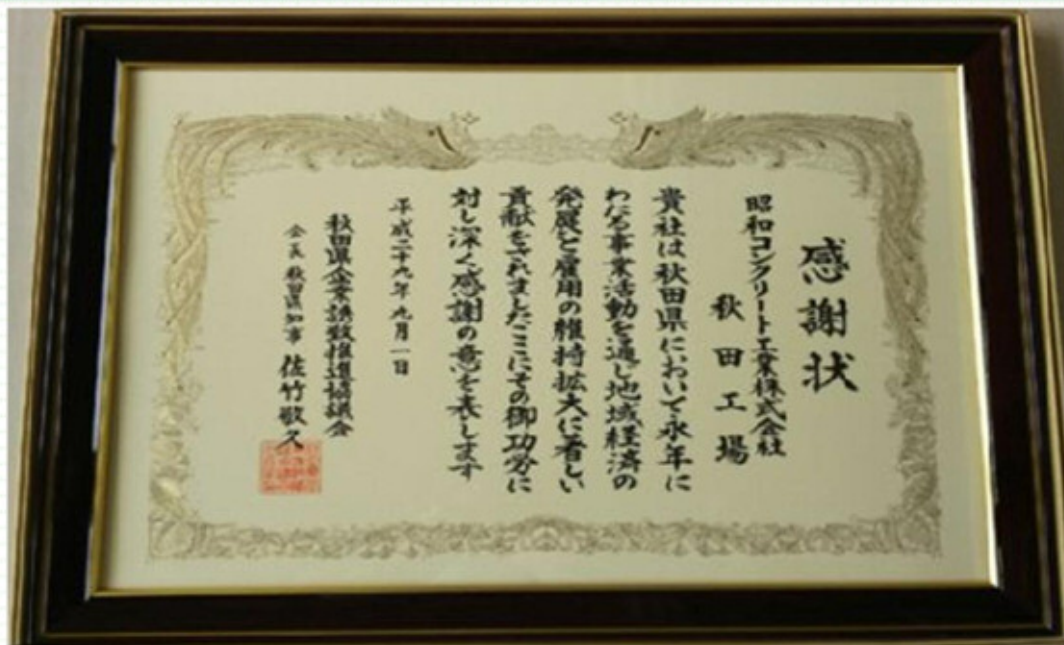 感謝状
昭和コンクリート工業株式会社
秋田工場
貴社は秋田県において永年に
わたる事業活動を通じ地域経済の
発展と雇用の維持拡大に著しい
貢献をされましたここにその御功労に
対し深く感謝の意を表します
平成二十九年九月一日
秋田県企業誘致推進協議会
会長 秋田県知事 佐竹敬久